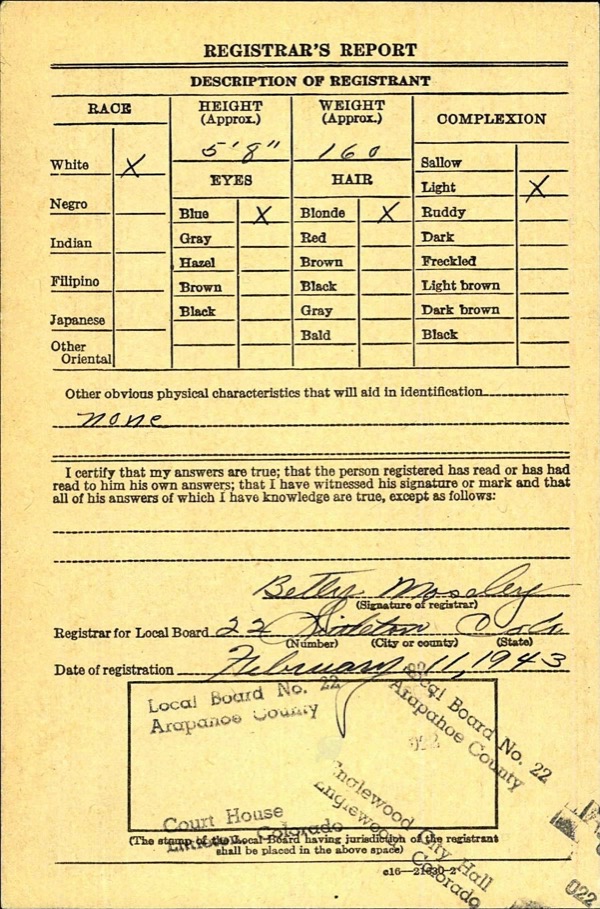 REGISTRAR'S REPORT
DESCRIPTION OF REGISTRANT
RACE
White X
Negro
Indian
Filipino
Japanese
Other
Oriental
HEIGHT
(Approx.)
5' 8"
EYES
Blue X
Gray
Hazel
Brown
Black
WEIGHT
(Approx.)
160
HAIR
Blonde X
Red
Brown
Black
Gray
Bald
COMPLEXION
Sallow
Light X
Ruddy
Dark
Freckled
Light brown
Dark brown
Black
Other obvious physical characteristics that will aid in identification
none
I certify that my answers are true; that the person registered has read or has had
read to him his own answers; that I have witnessed his signature or mark and that
all of his answers of which I have knowledge are true, except as follows:
Betty Mosley
(Signature of registrar)
Registrar for Local Board 22 Littleton Colo
(Number) (City or county) (State)
Date of registration February 11, 1943
Local Board No. 22
Arapahoe County
Court House
Colorado
Local Board No. 22
Arapahoe County
022
Englewood City Hall
Englewood, Colorado
(The stamp of the Local Board having jurisdiction of the registrant
shall be placed in the above space)
022